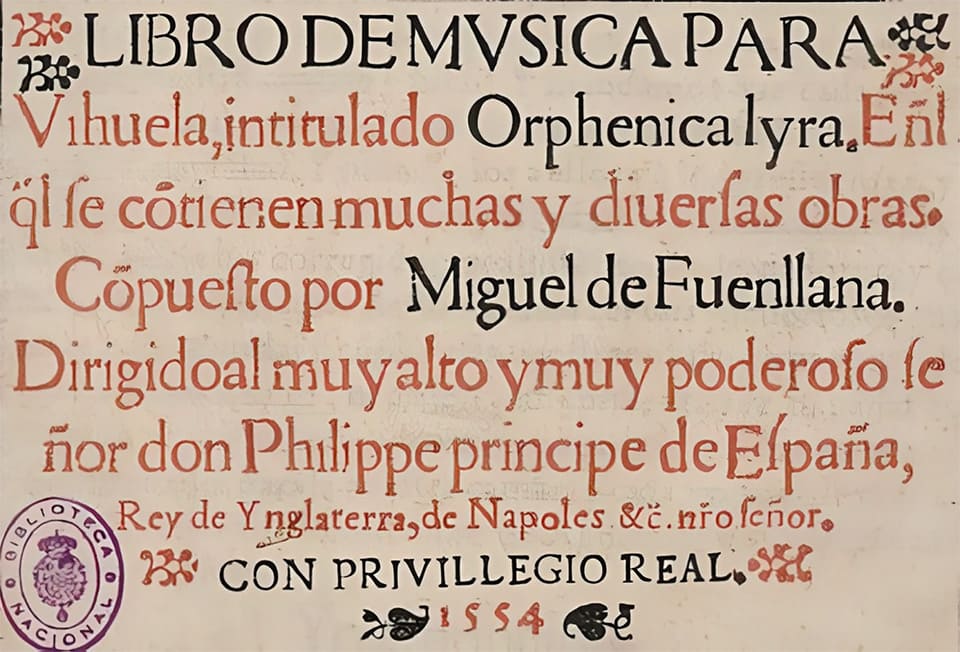 LIBRO DE MVSICA PARA
Vihuela, intitulado Orphenica lyra. Eñl
q̃l ſe cõtienen muchas y diuerſas obras.
Cõpueſto por Miguel de Fuenllana.
Dirigido al muy alto y muy poderoſo ſe
ñor don Philippe principe de Eſpaña,
Rey de Ynglaterra, de Napoles &c̃. nr̃o ſeñor.
CON PRIVILLEGIO REAL.
1554
BIBLIOTECA
NACIONAL